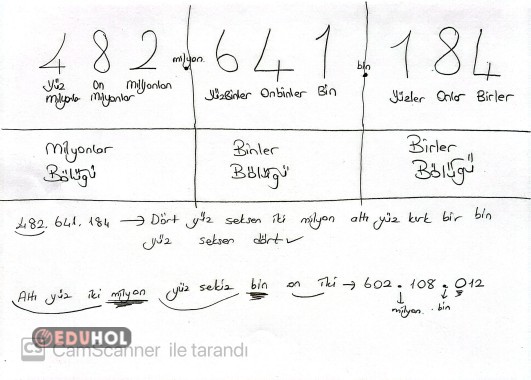 482 milyon 641 bin 184
Yüz Milyonlar On Milyonlar Milyonlar Yüzbinler Onbinler Bin Yüzler Onlar Birler
Milyonlar Bölüğü Binler Bölüğü Birler Bölüğü
482.641.184 → Dört yüz seksen iki milyon altı yüz kırk bir bin
yüz seksen dört ✓
Altı yüz iki milyon yüz sekiz bin on iki → 602.108.012
milyon bin
EDUHOL
CS CamScanner ile tarandı